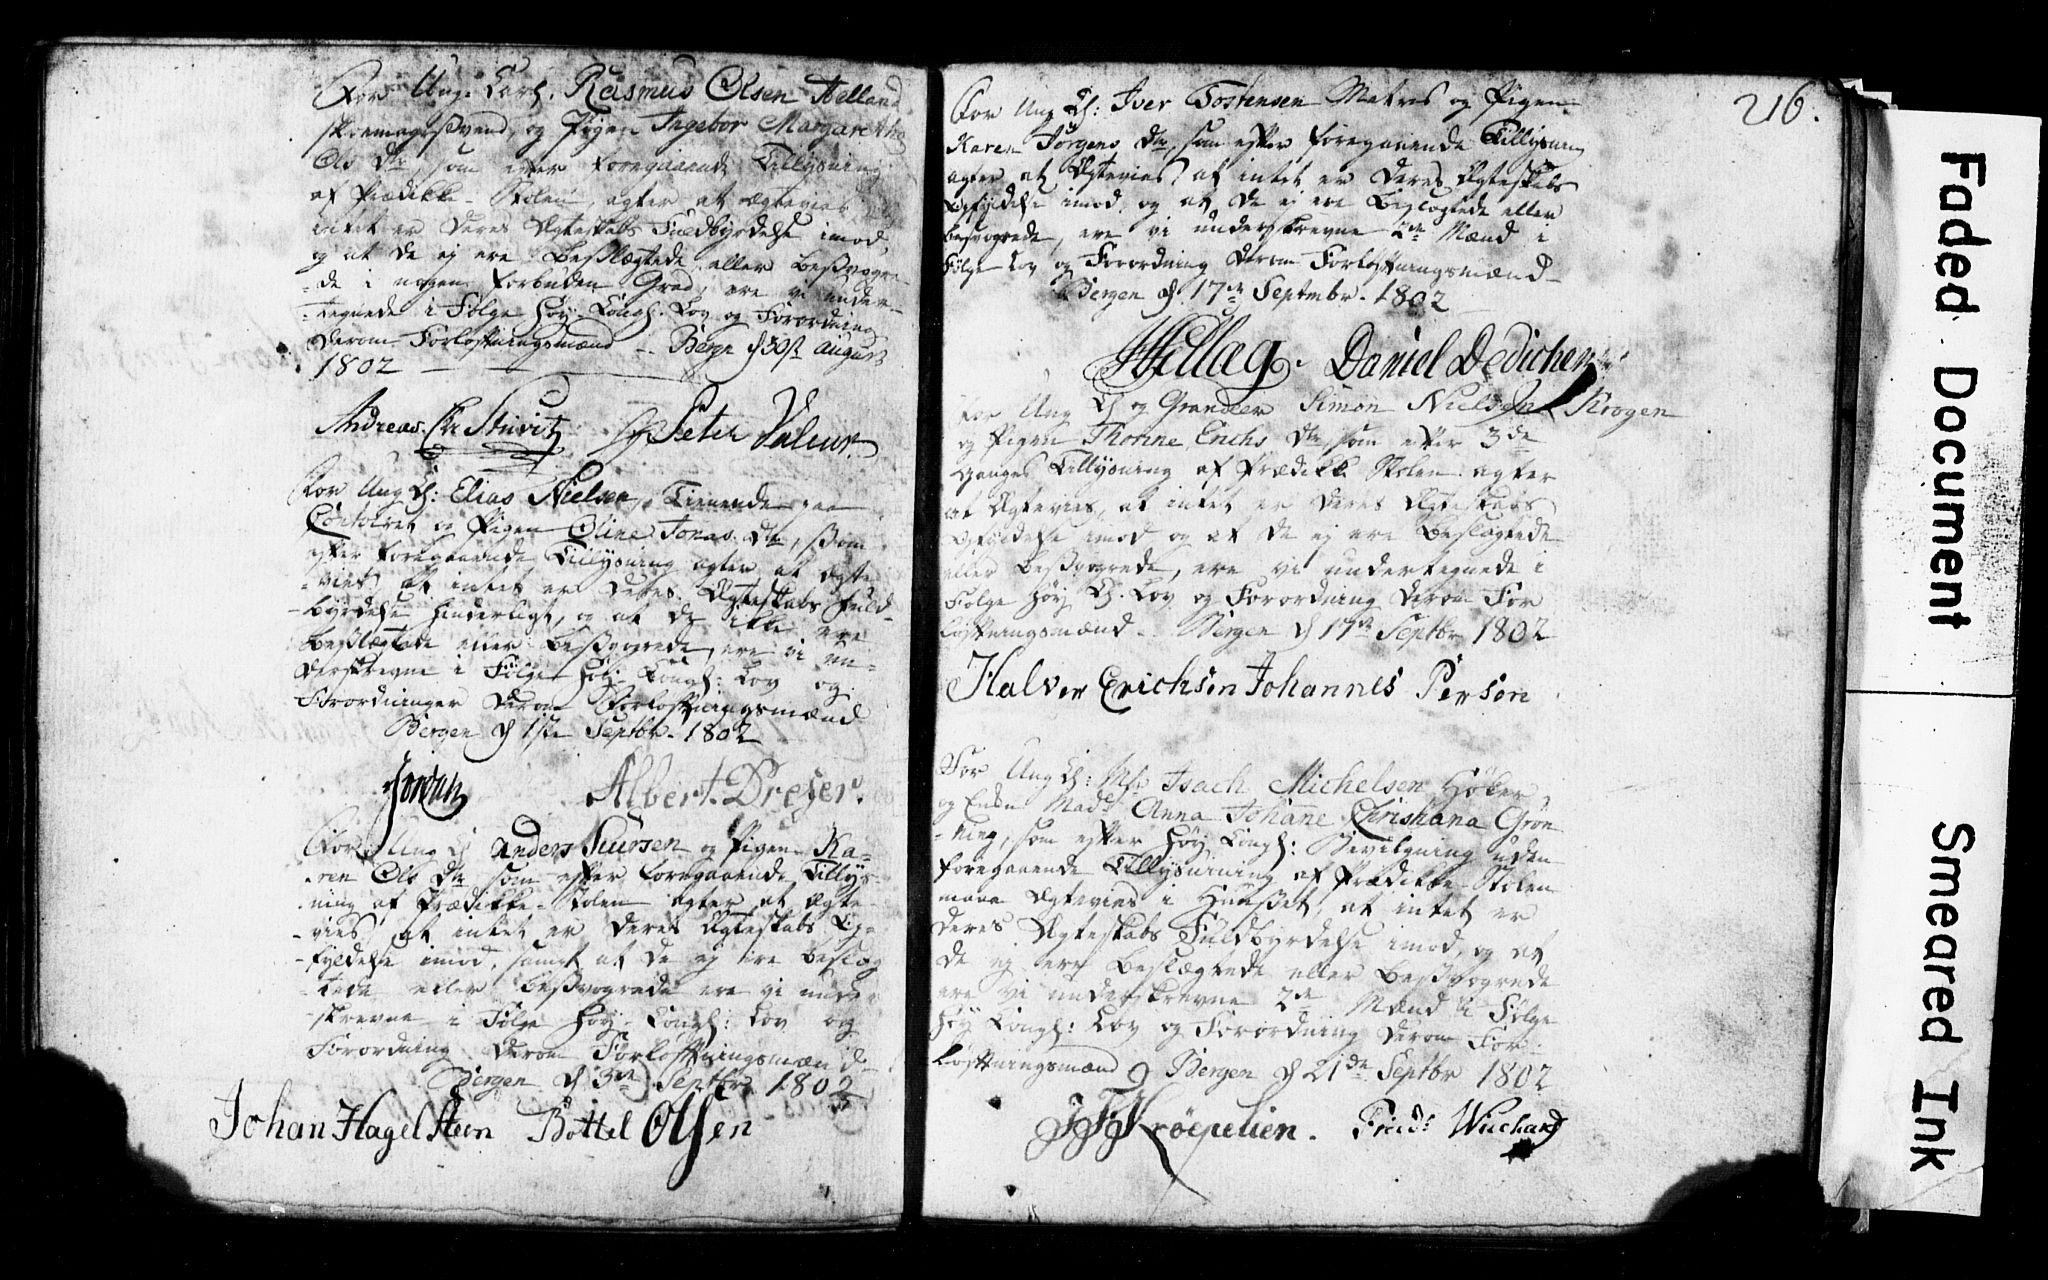 For Ung. Carl. Rasmus Olsen Helland
skoemagersvend, og Pigen Ingebor Margarethe
Ols Dtr, som efter foregaaende Tillysning
af Prædikke-Stolen, agter at ægtevies
intet er deres Ægteskabs Fuldbyrdelse imod,
og at de ej ere Beslægtede eller Besvogre-
-de i nogen forbuden Grad, ere vi under-
-tegnede i Følge Høy Kongl. Lov og Forordning
derom Forlofningsmænd - Bergen d 30te August
1802
Andreas Chr Stuvitz Peter Valeur
For Ung K: Elias Nielsen, Tienende paa
Contoiret og Pigen Oline Jonas Dtr, som
efter foregaaende Tillysning agter at Ægte-
-vies, at intet er deres Ægteskabs Fuld-
-byrdelse hinderligt, og at de ikke ere
beslægtede eller besvogrede, ere vi un-
derskrevne i Følge Høy Kongl: Lov og
Forordninger derom Forlofningsmænd
Bergen d 1ste Septbr. 1802
Albert Dreyer.
For Ung K Anders Suursen og Pigen Ka-
-ren Ols Dtr som efter foregaaende Tillys-
-ning af Prædikke-Stolen agter at Ægte-
-vies, at intet er deres Ægteskabs Op-
-fyldelse imod, samt at de ej ere beslæg
-tede eller besvogrede ere vi under
-skrevne i Følge Høy Kongl: Lov og
Forordning derom Forlofningsmænd
Bergen d 3de Septbr 1802
Johan Hagelsteen Bottel Olsen
216.
For Ung K: Iver Tostensen Matres og Pigen
Karen Jørgens Dtr, som efter foregaaende Tillysning
agter at Ægtevies, at intet er deres Ægteskabs
Opfyldelse imod og at de ej ere Beslægtede eller
besvogrede, ere vi underskrevne 2de Mænd i
Følge Lov og Forordning derom Forlofningsmænd
Bergen d 17de Septmbr. 1802
Daniel Dedichen
For Ung K og Grandeer Simon Nielsen Krogen
og Pigen Thonne Erichs Dtr, som efter 3de
Ganges Tillysning af Prædikke Stolen agter
at Ægtevies, at intet er deres Ægteskabs
Opfyldelse imod og at de ej ere Beslægtede
eller Besvogrede, ere vi undertegnede i
Følge Høy K. Lov og Forordning derom For
lofningsmænd. Bergen d 17de Septbr 1802
Halver Erichsen Johannes Person
For Ung K: Mr Isach Michelsen Høker
og Enke Made Anna Johane Christiana Grøn
-ning, som efter Høy Kongl: Bevilgning uden
foregaaende Tillysnining af Prædikke-Stolen
maae Ægtevies i Huuset, at intet er
deres Ægteskabs Fuldbyrdelse imod, og at
de ej ere beslægtede eller besvogrede
ere vi underskrevne 2de Mænd i Følge
Høy Kongl: Lov og Forordning derom For-
lofningsmænd Bergen d 21de Septbr 1802
Krøepelien. Fridr Wichard
Faded Document
Smeared Ink